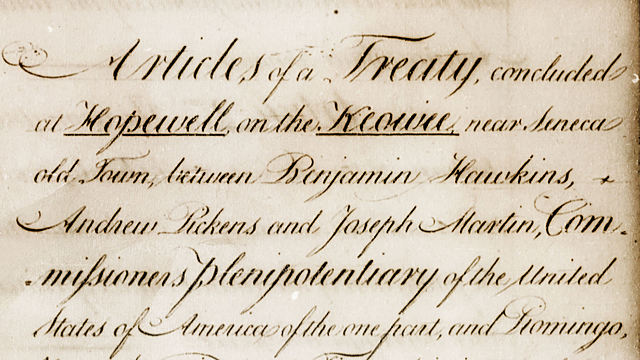 Articles of a Treaty, concluded
at Hopewell, on the Keowee, near Seneca
old Town, between Benjamin Hawkins, +
Andrew Pickens and Joseph Martin, Com-
-missioners plenipotentiary of the United
States of America of the one part, and Piomingo,